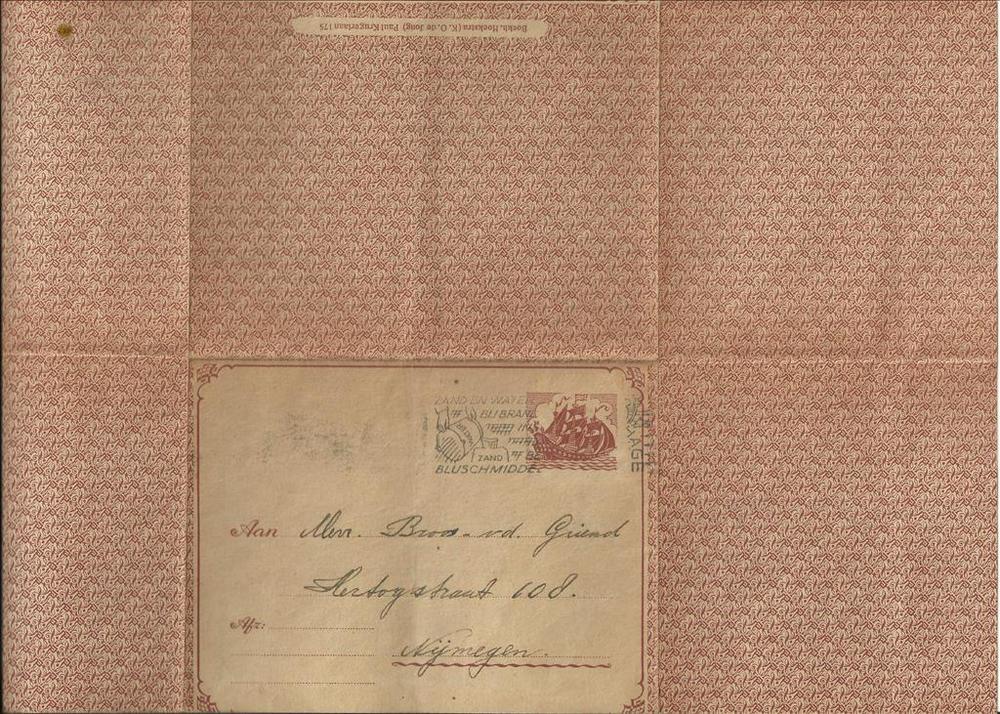 Boekh. Hoekstra (K. O. de Jong) Paul Krugerlaan 175
ZAND EN WATER
BIJ BRAND
ZAND
BLUSCHMIDDEL
Aan Mevr. Broos - v.d. Griend
Hertogstraat 108.
Afz:
Nijmegen.